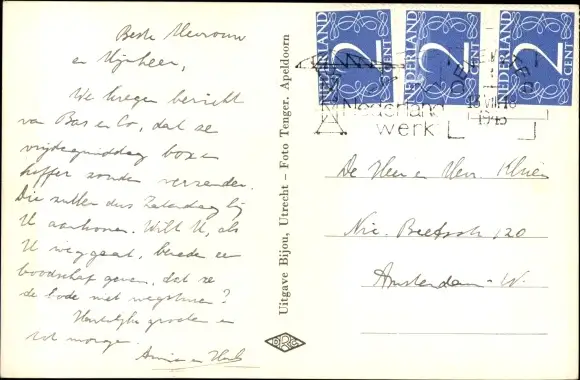 Beste Mevrouw
en Mijnheer,
We kregen bericht
van Bas en Co, dat ze
vrijdagmiddag
koffer zonden verzenden.
Die zullen dus Zaterdag bij
U aankomen. Wilt U, als
U weggaat, beneden een
boodschap geven, dat ze
de bode niet wegsturen?
Hartelijke groeten en
tot morgen.
Annie en
Uitgave Bijou, Utrecht – Foto Tenger, Apeldoorn
NEDERLAND
2
CENT
NEDERLAND
2
CENT
NEDERLAND
2
CENT
Nederland
werk
1948
De Heer en Mevr.
Nic. Beetsstr 120
Amsterdam-W.